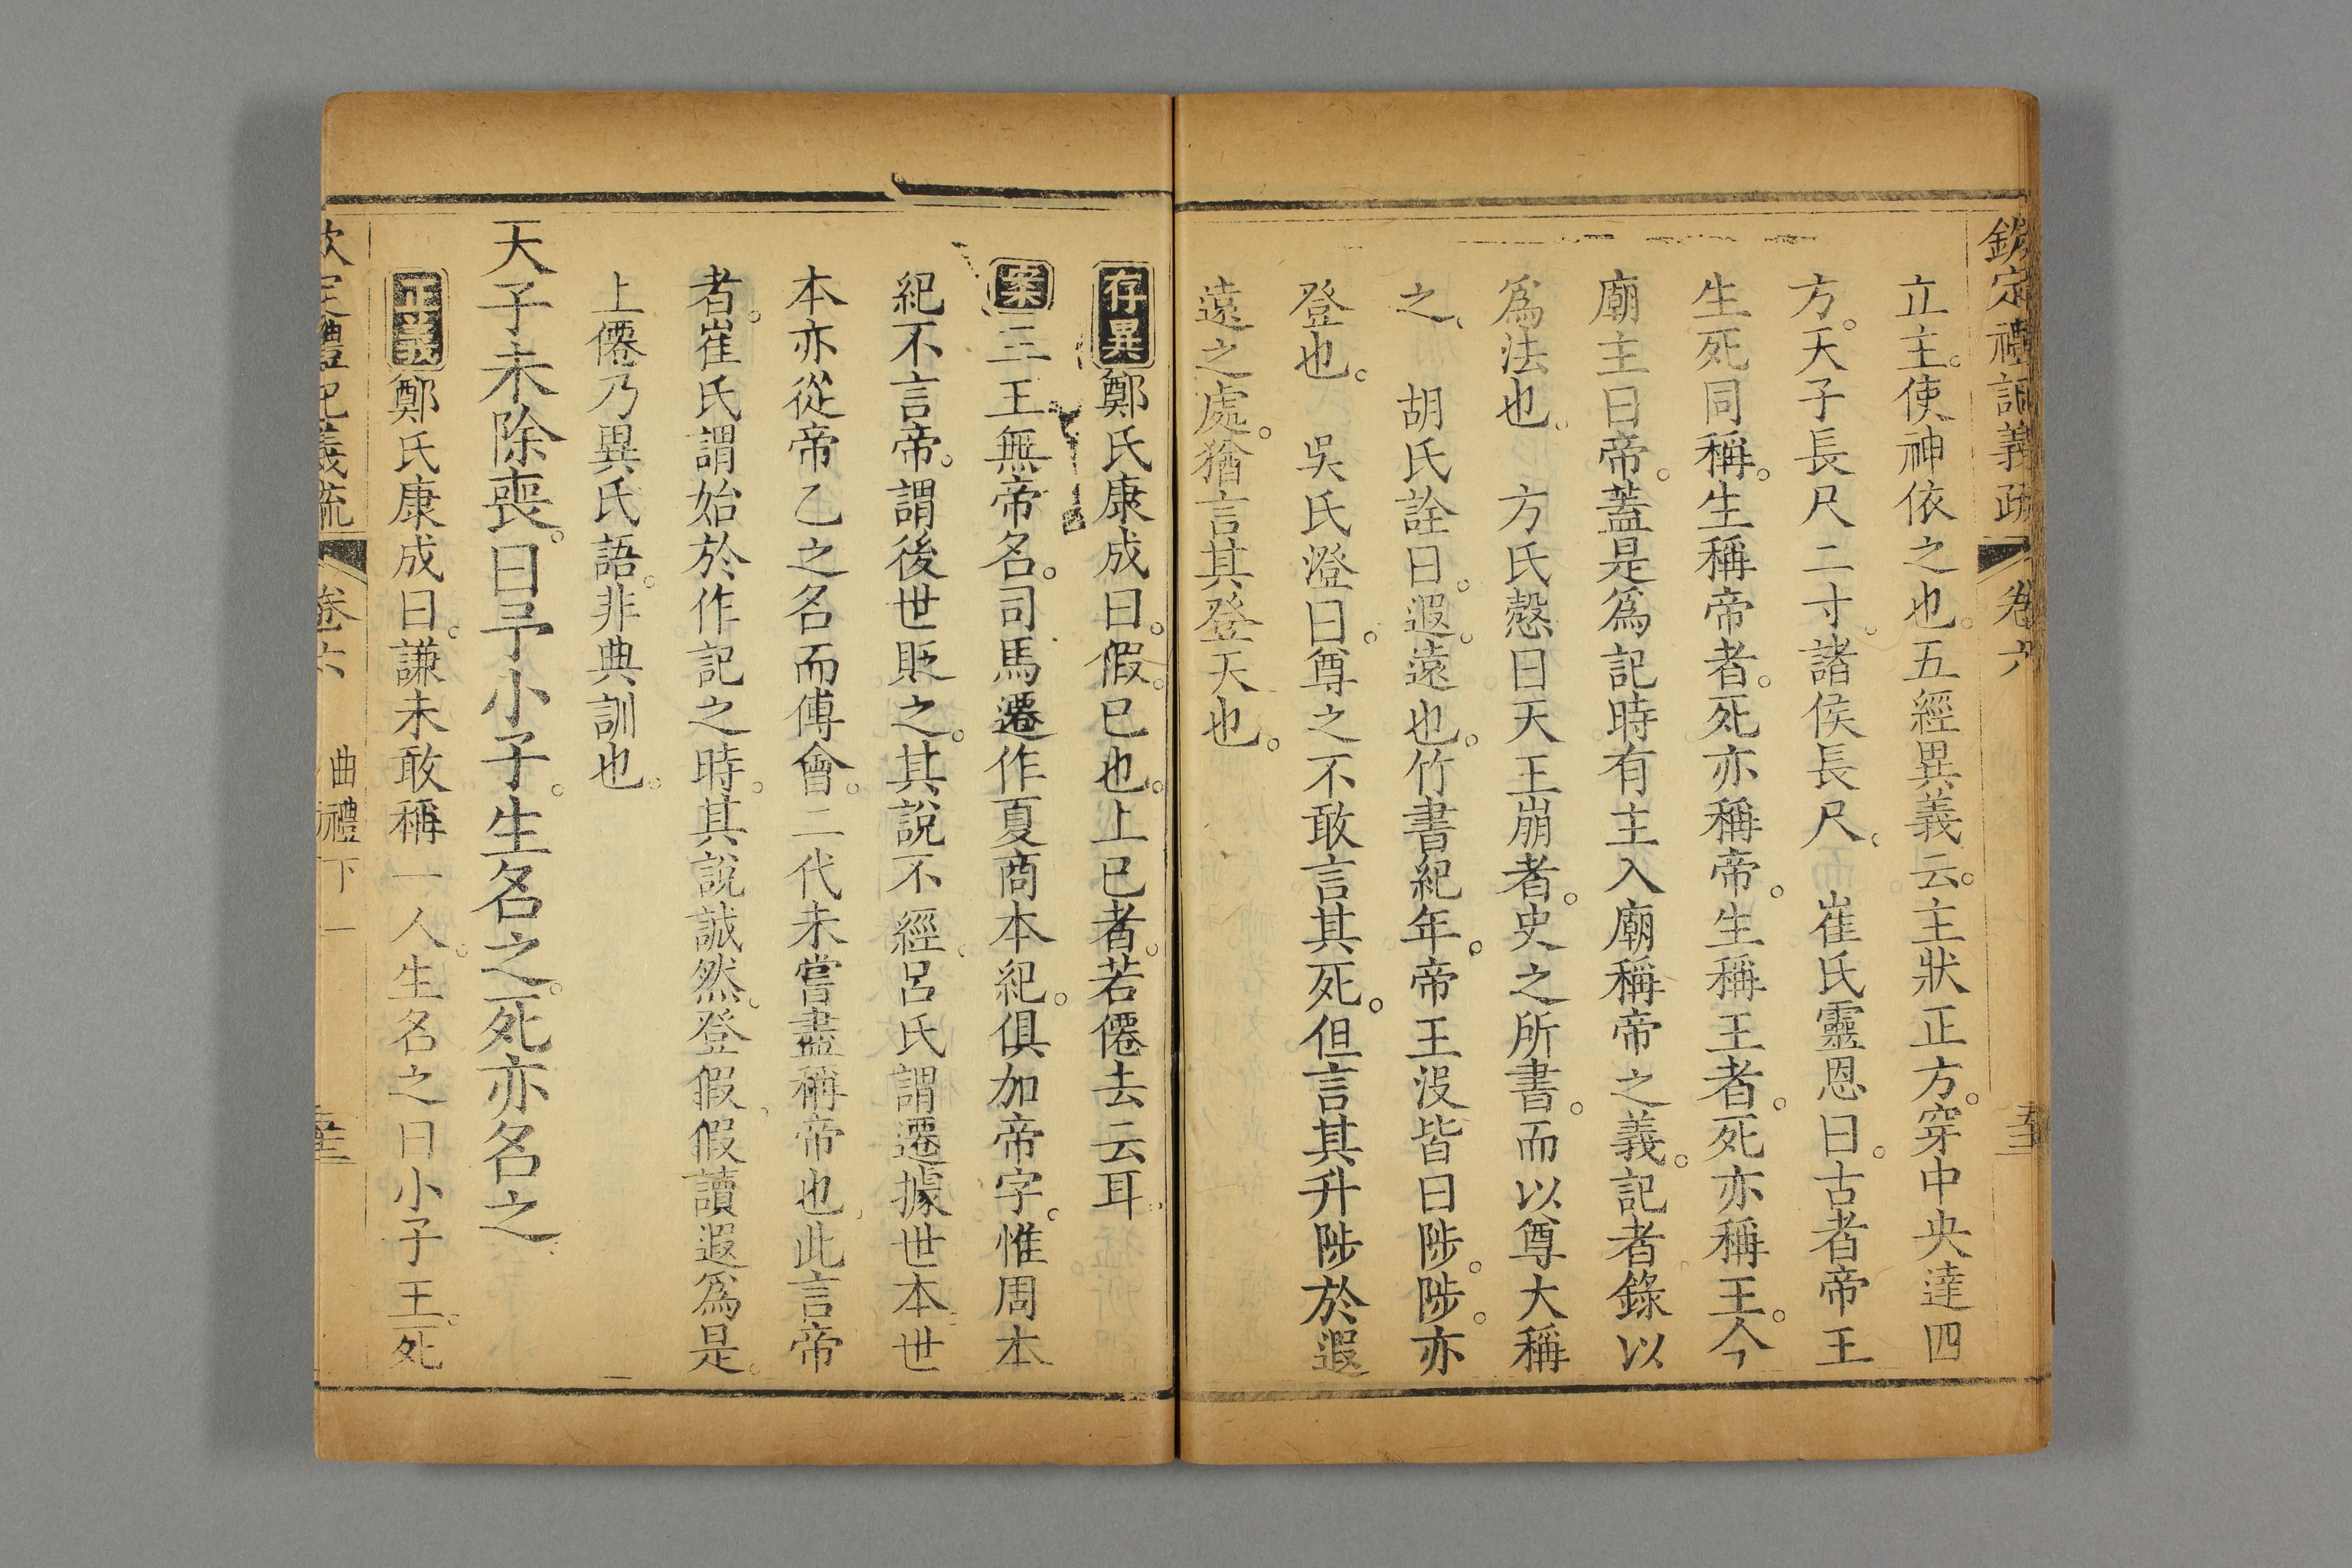 欽定禮記義疏 卷六
立主。使神依之也。五經異義云。主狀正方。穿中央達四
方。天子長尺二寸。諸侯長尺。 崔氏靈恩曰。古者帝王
生死同稱。生稱帝者。死亦稱帝。生稱王者。死亦稱王。今
廟主曰帝。蓋是爲記時有主入廟稱帝之義。記者錄以
爲法也。 方氏慤曰天王崩者。史之所書。而以尊大稱
之、 胡氏詮曰。遐。遠也。竹書紀年。帝王沒皆曰陟。陟。亦
登也。 吳氏澄曰。尊之不敢言其死。但言其升陟於遐
遠之處。猶言其登天也。
存異鄭氏康成曰。假。已也。上已者。若僊去云耳
案三王無帝名。司馬遷作夏商本紀。俱加帝字。惟周本
紀不言帝。謂後世貶之。其說不經。呂氏謂遷據世本。世
本亦從帝乙之名而傅會。二代未嘗盡稱帝也、此言帝
者。崔氏謂始於作記之時。其說誠然。登假、假讀遐爲是。
上僊乃異氏語。非典訓也。
天子未除喪。曰予小子。生名之。死亦名之
正義鄭氏康成曰。謙未敢稱一人。生名之曰小子王。死
欽定禮記義疏 卷六 曲禮下